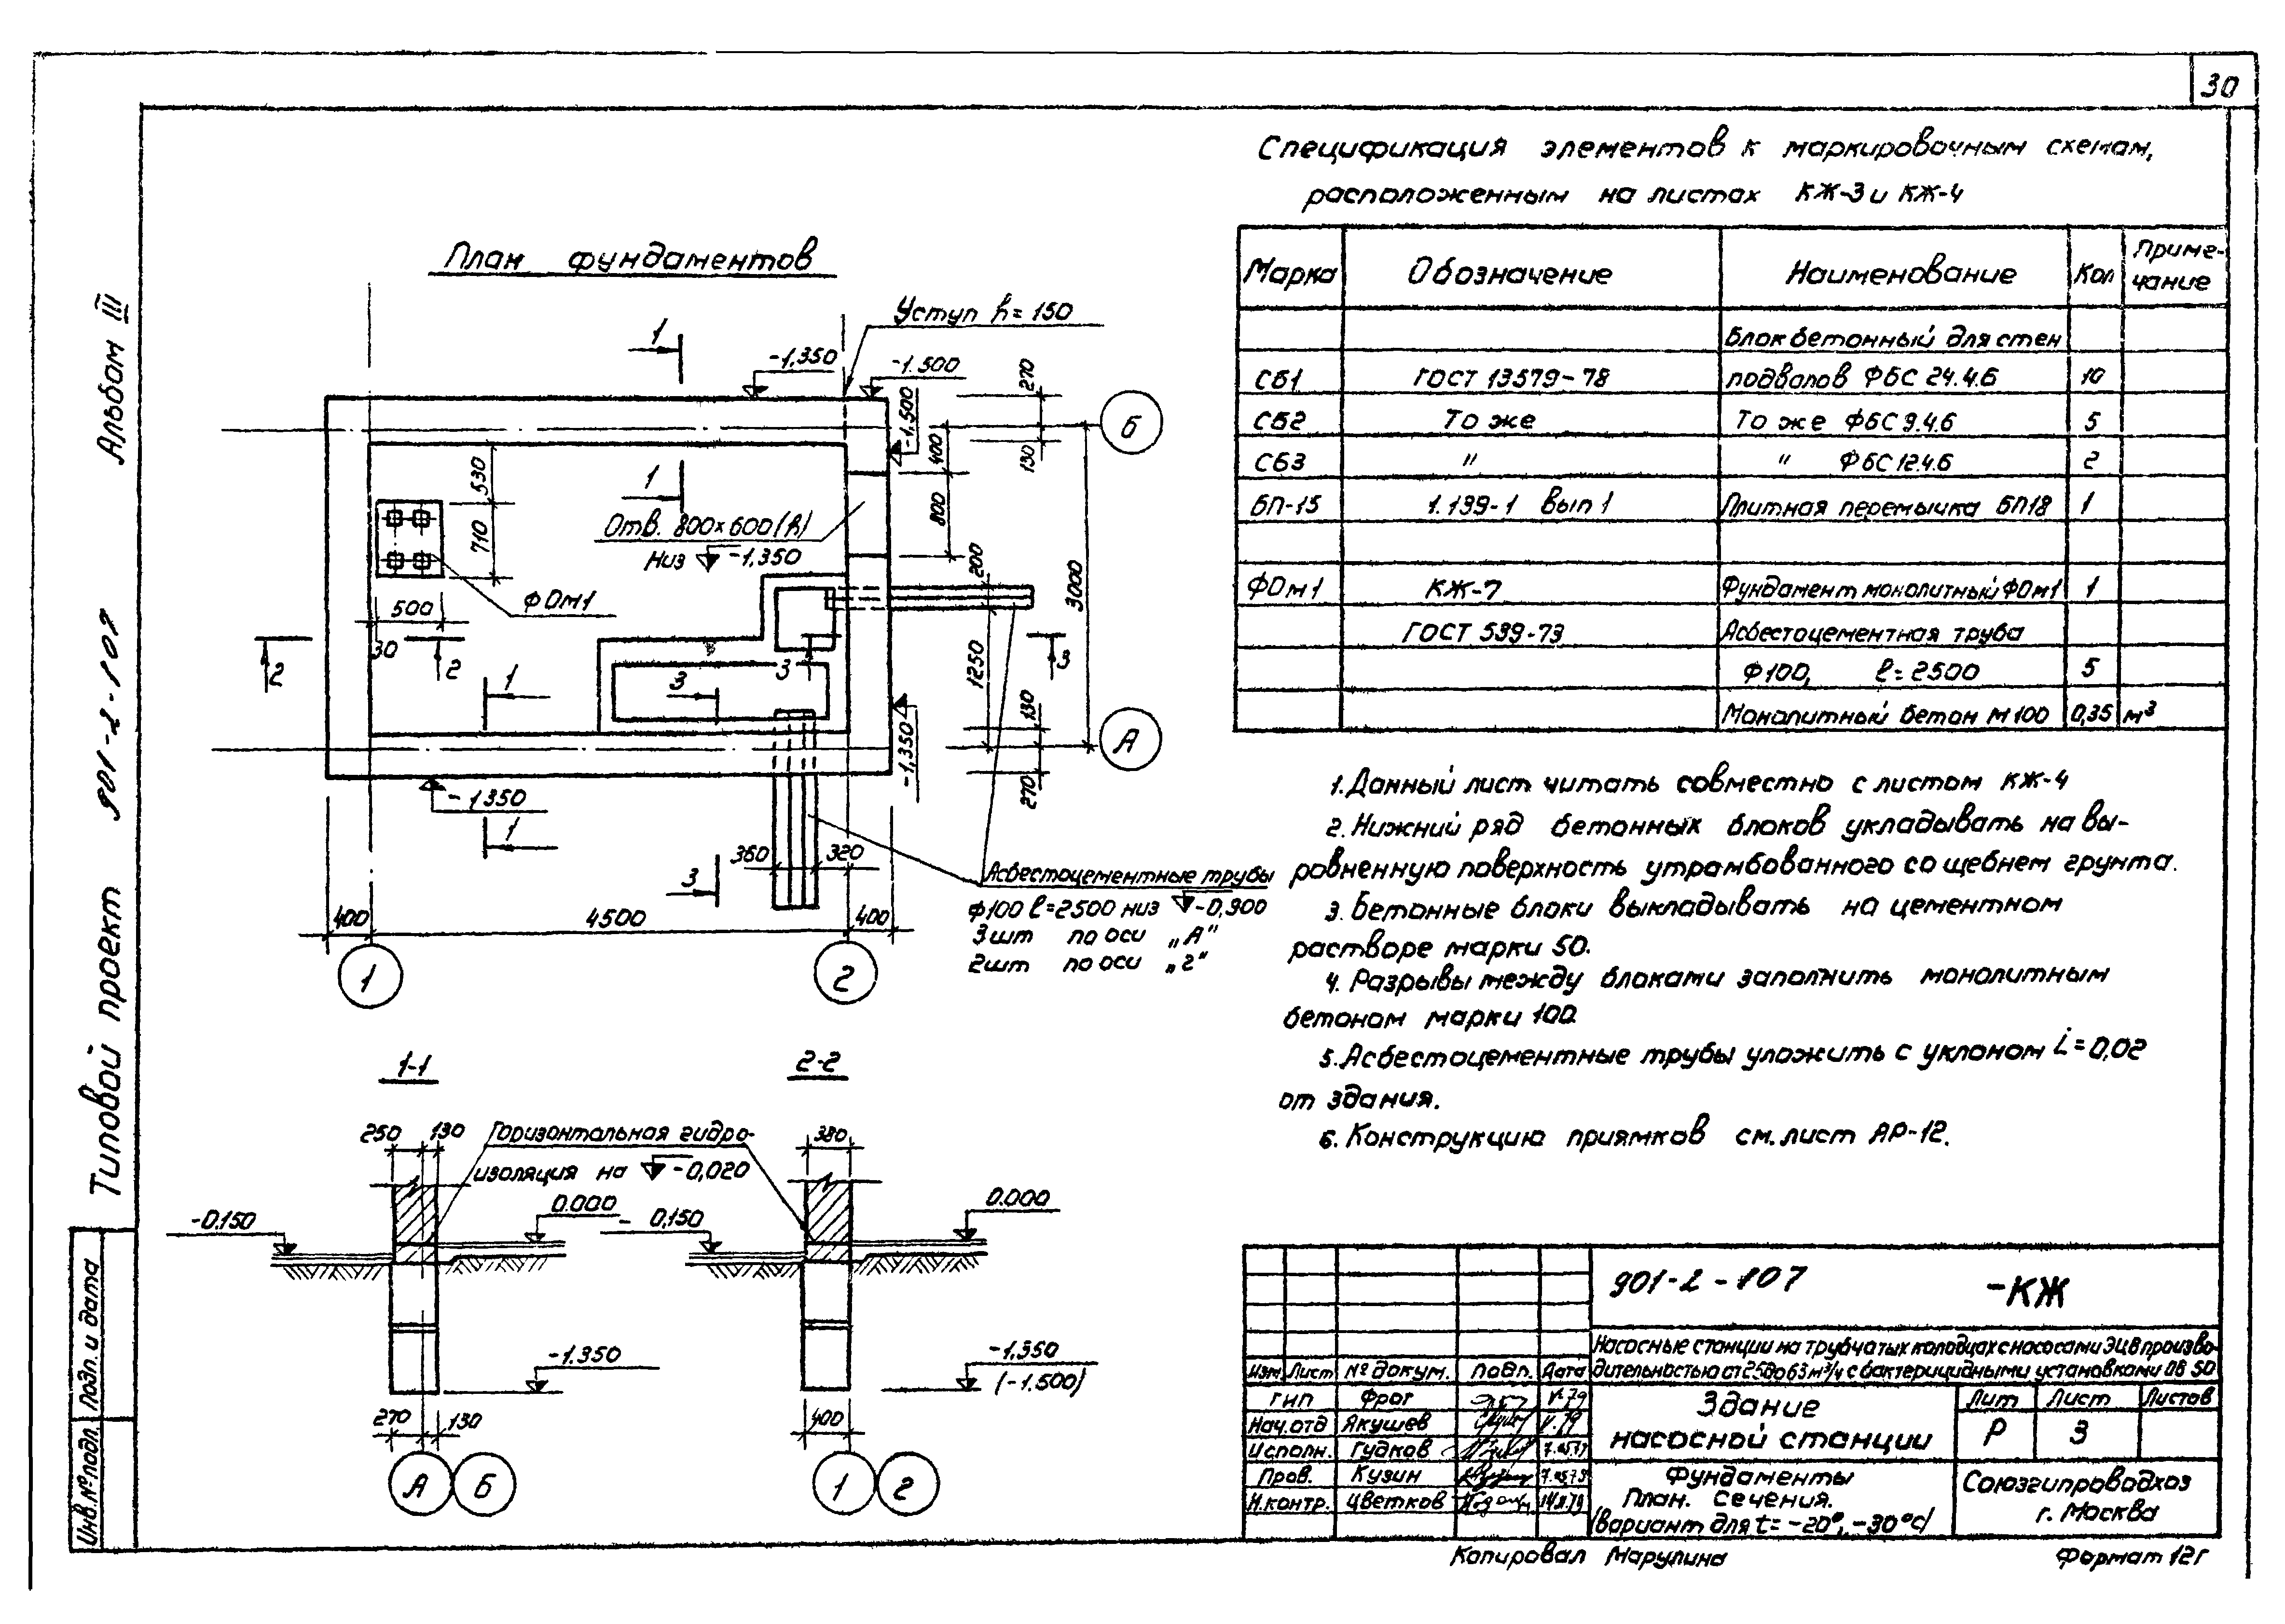 30
Альбом III
Типовой проект 901-2-107
Инв.№подл. Подп. и дата
План фундаментов
Уступ h= 150
1
-1,350
-1.500
-1,500
270
130
Б
400
800
530
710
1
Отв. 800×600(h)
Низ -1,350
ФОм1
500
30
200
3000
1250
2
2
3
3
3
1
130
270
А
-1,350
-1350
1
360
320
3
Асбестоцементные трубы
ф100 ℓ=2500 низ -0,900
3шт по оси „А"
2шт по оси „2"
400
4500
400
1
2
1-1
250
130
Горизонтальная гидро-
изоляция на -0,020
-0.150
0.000
-1.350
270
130
А
Б
2-2
380
- 0,150
0.000
-1,350
(-1.500)
400
1
2
Спецификация элементов к маркировочным схемам,
расположенным на листах КЖ-3 и КЖ-4
Марка Обозначение Наименование Кол Приме-
чание
Блок бетонный для стен
СБ1 ГОСТ 13579-78 подвалов ФБС 24.4.6 10
СБ2 То же То же ФБС 9.4.6 5
СБ3 " " ФБС 12.4.6 2
БП-15 1.139-1 Вып 1 Плитная перемычка БП18 1
ФОм1 КЖ-7 Фундамент монолитный ФОм1 1
ГОСТ 539-73 Асбестоцементная труба
Ф100, ℓ=2500 5
Монолитный бетон М100 0,35 м³
1. Данный лист читать совместно с листом КЖ-4
2. Нижний ряд бетонных блоков укладывать на вы-
ровненную поверхность утрамбованного со щебнем грунта.
3. Бетонные блоки выкладывать на цементном
растворе марки 50.
4. Разрывы между блоками заполнить монолитным
бетоном марки 100.
5. Асбестоцементные трубы уложить с уклоном i=0,02
от здания.
6. Конструкцию приямков см. лист АР-12.
901-2-107 -КЖ
Насосные станции на трубчатых колодцах с насосами ЭЦВ произво-
дительностью от 25 до 63 м³/ч с бактерицидными установками ОВ 50
Изм Лист № докум. подп. Дата
ГИП Фрог V.79
Нач.отд Якушев V.79
Исполн. Гудков
Пров. Кузин
Н.контр. Цветков
Здание
насосной станции
Лит Лист Листов
Р 3
Фундаменты
План. Сечения.
(вариант для t= -20°, -30°С)
Союзгипроводхоз
г. Москва
Копировал Марулина Формат 12г